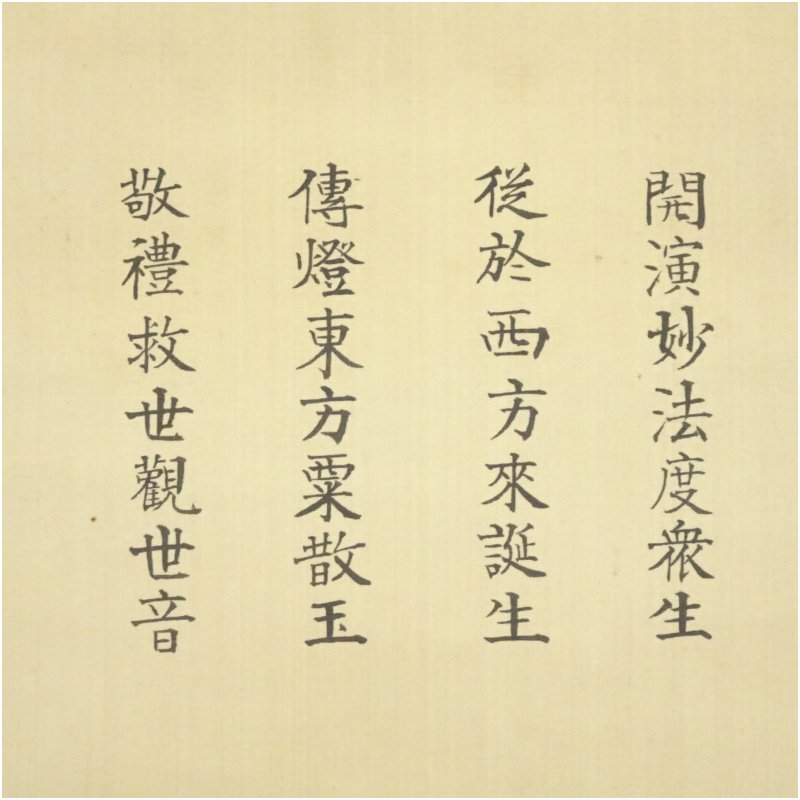 開演妙法度衆生
從於西方來誕生
傳燈東方粟散玉
敬禮救世觀世音